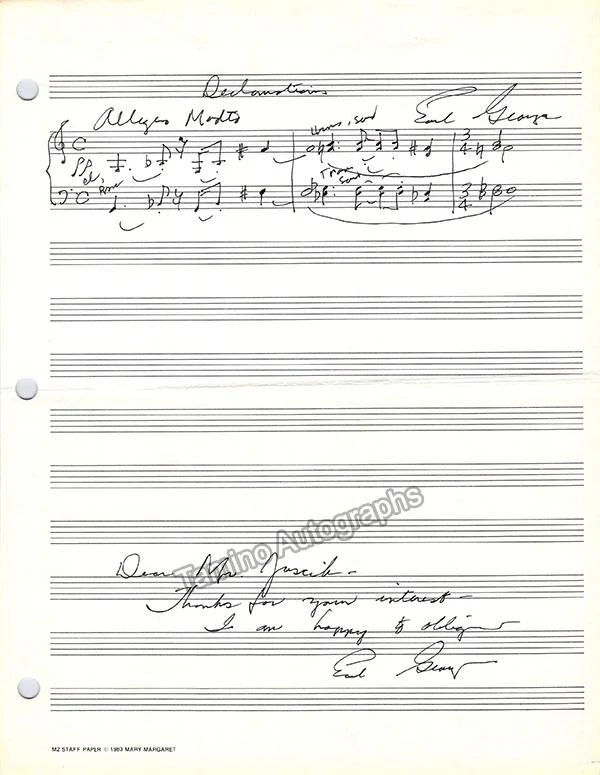 Declamations
Allegro Modto Earl George
Horns, sord
pp
Trom
sord
cl,
3 4
3 4
Dear Mr. Juscik -
Thanks for your interest -
I am happy to oblige
Earl George
Tamino Autographs
M2 STAFF PAPER © 1983 MARY MARGARET